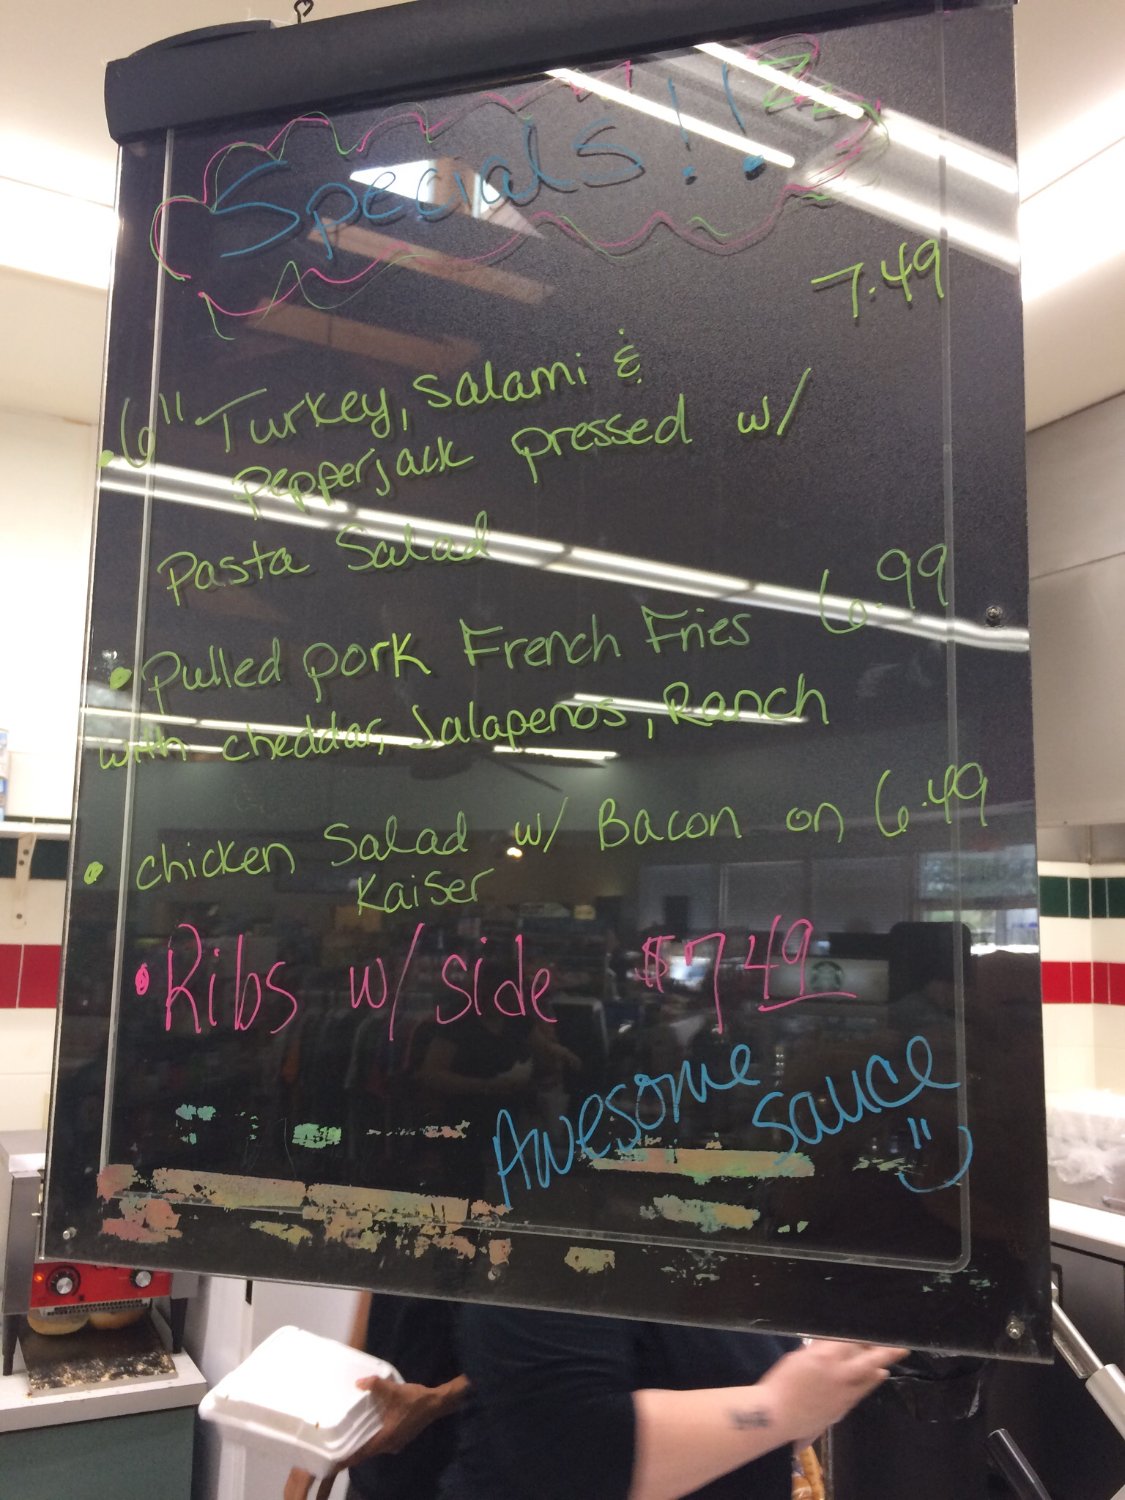 Specials!!
7.49
• 6" Turkey, Salami &
Pepperjack pressed w/
Pasta Salad
• Pulled pork French Fries 6.99
with cheddar, Jalapenos, Ranch
• chicken Salad w/ Bacon on 6.49
Kaiser
• Ribs w/ side $7.49
Awesome
sauce